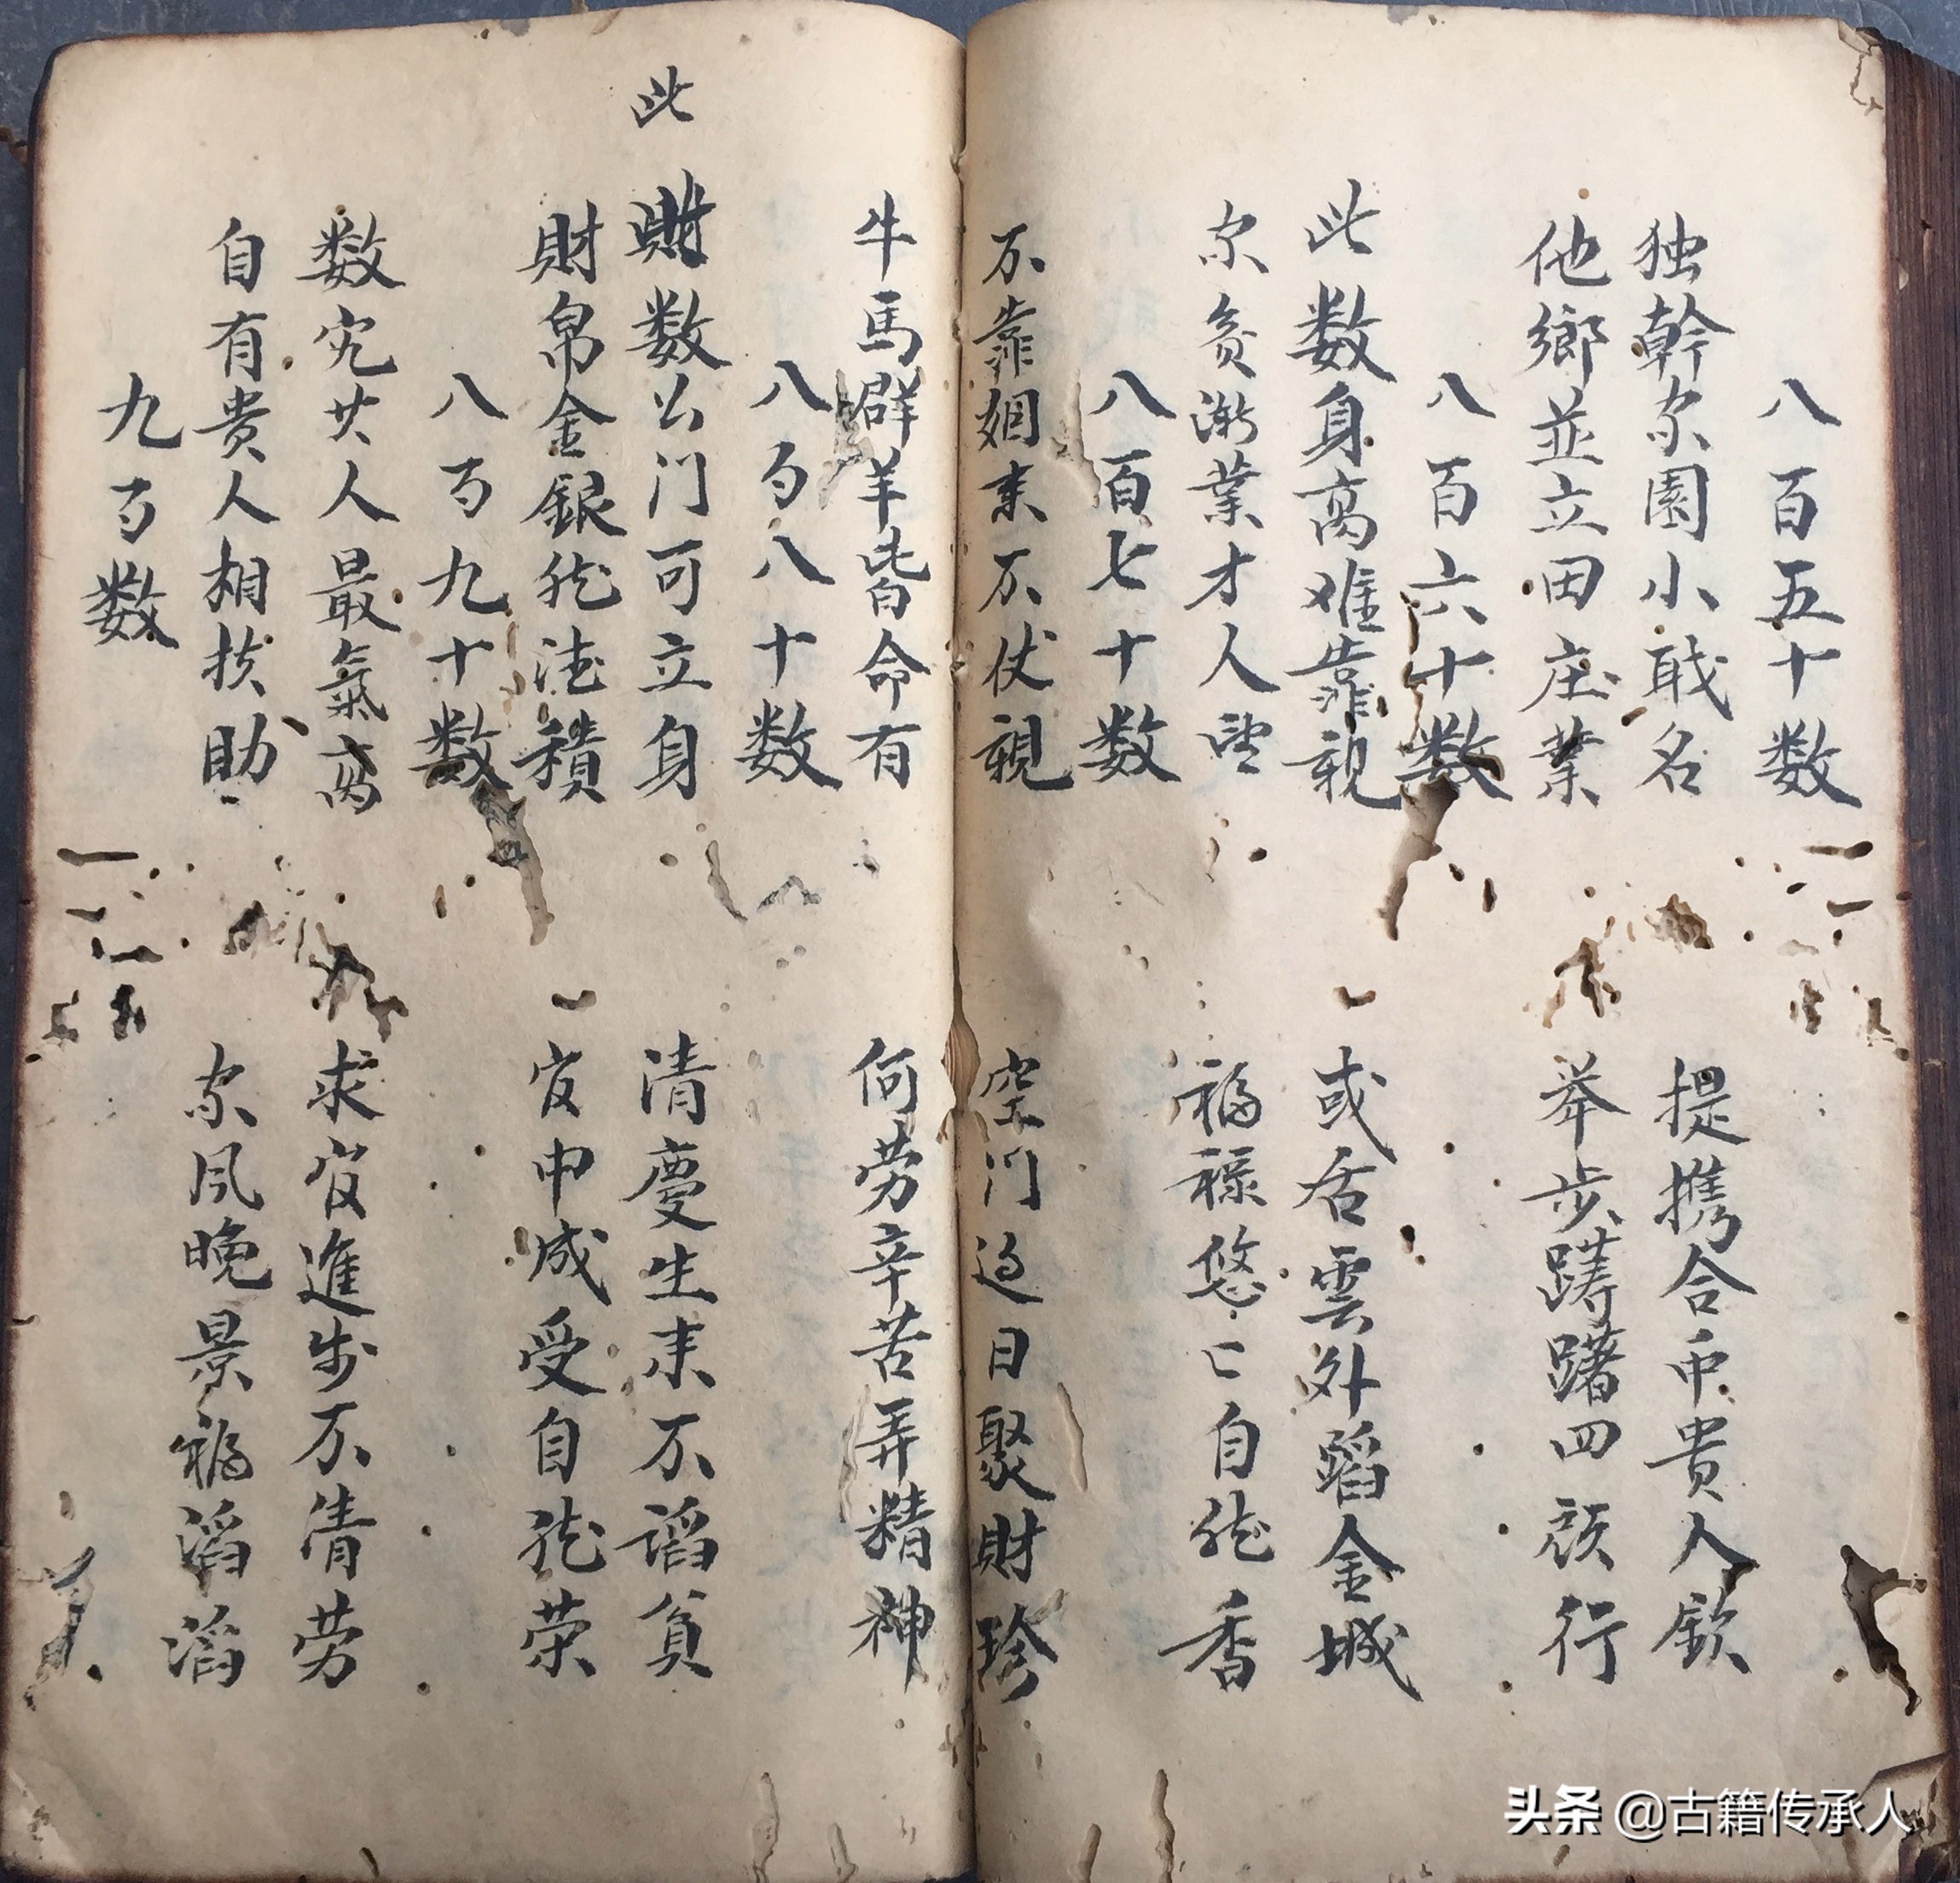 八百五十数
独幹家園小戝名 提携合中貴人欽
他鄉並立田庄業 举步躊躇四顾行
八百六十数
此数身高难靠親 或居雲外蹈金城
家貧漸業才人望 福禄悠〻自然香
八百七十数
不靠姻来不仗親 空门过日聚財珍
牛馬群羊皆命有 何劳辛苦弄精神
八百八十数
此数公门可立身 清慶生来不謟貧
財帛金銀然法積 官申成受自然荣
八百九十数
数究其人最氣高 求官進步不清劳
自有貴人相扶助 家风晚景福滔滔
九百数
头条 @古籍传承人